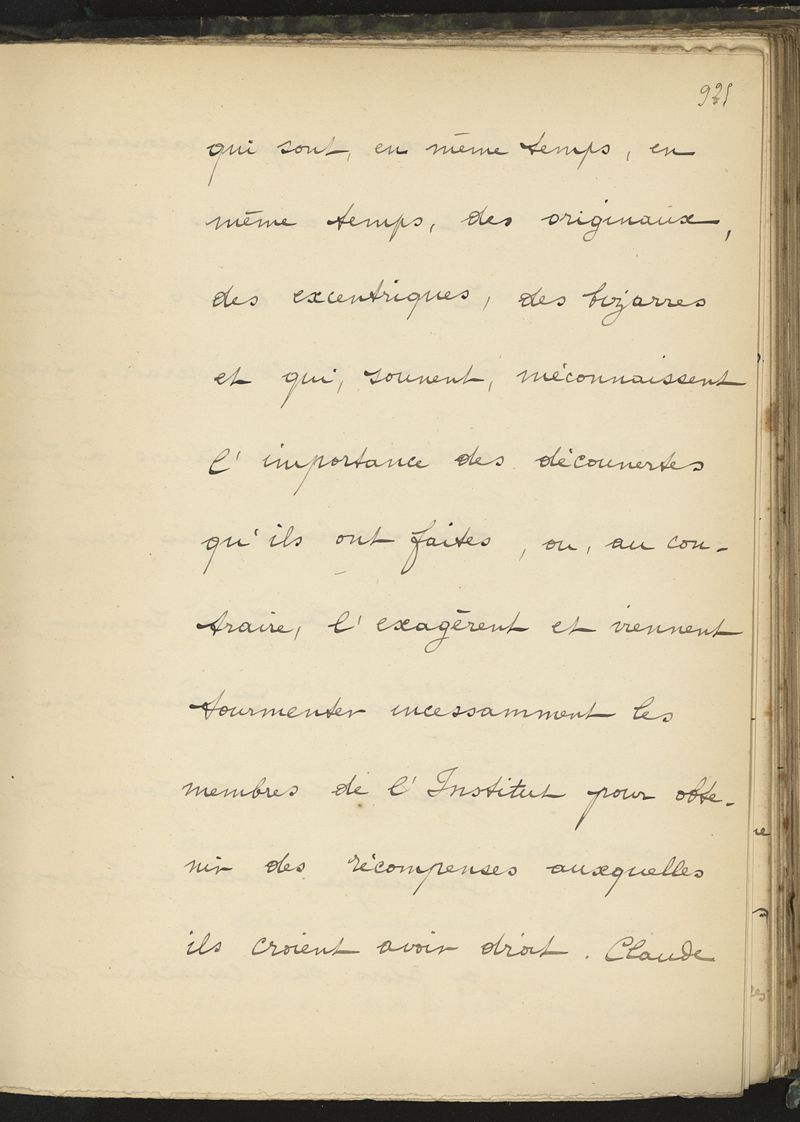 925
qui sont, en même temps, en
même temps, des originaux,
des excentriques, des bizarres
et qui, souvent, méconnaissent
l'importance des découvertes
qu'ils ont faites, ou, au con-
traire, l'exagèrent et viennent
tourmenter incessamment les
membres de l'Institut pour obte-
nir des récompenses auxquelles
ils croient avoir droit. Claude